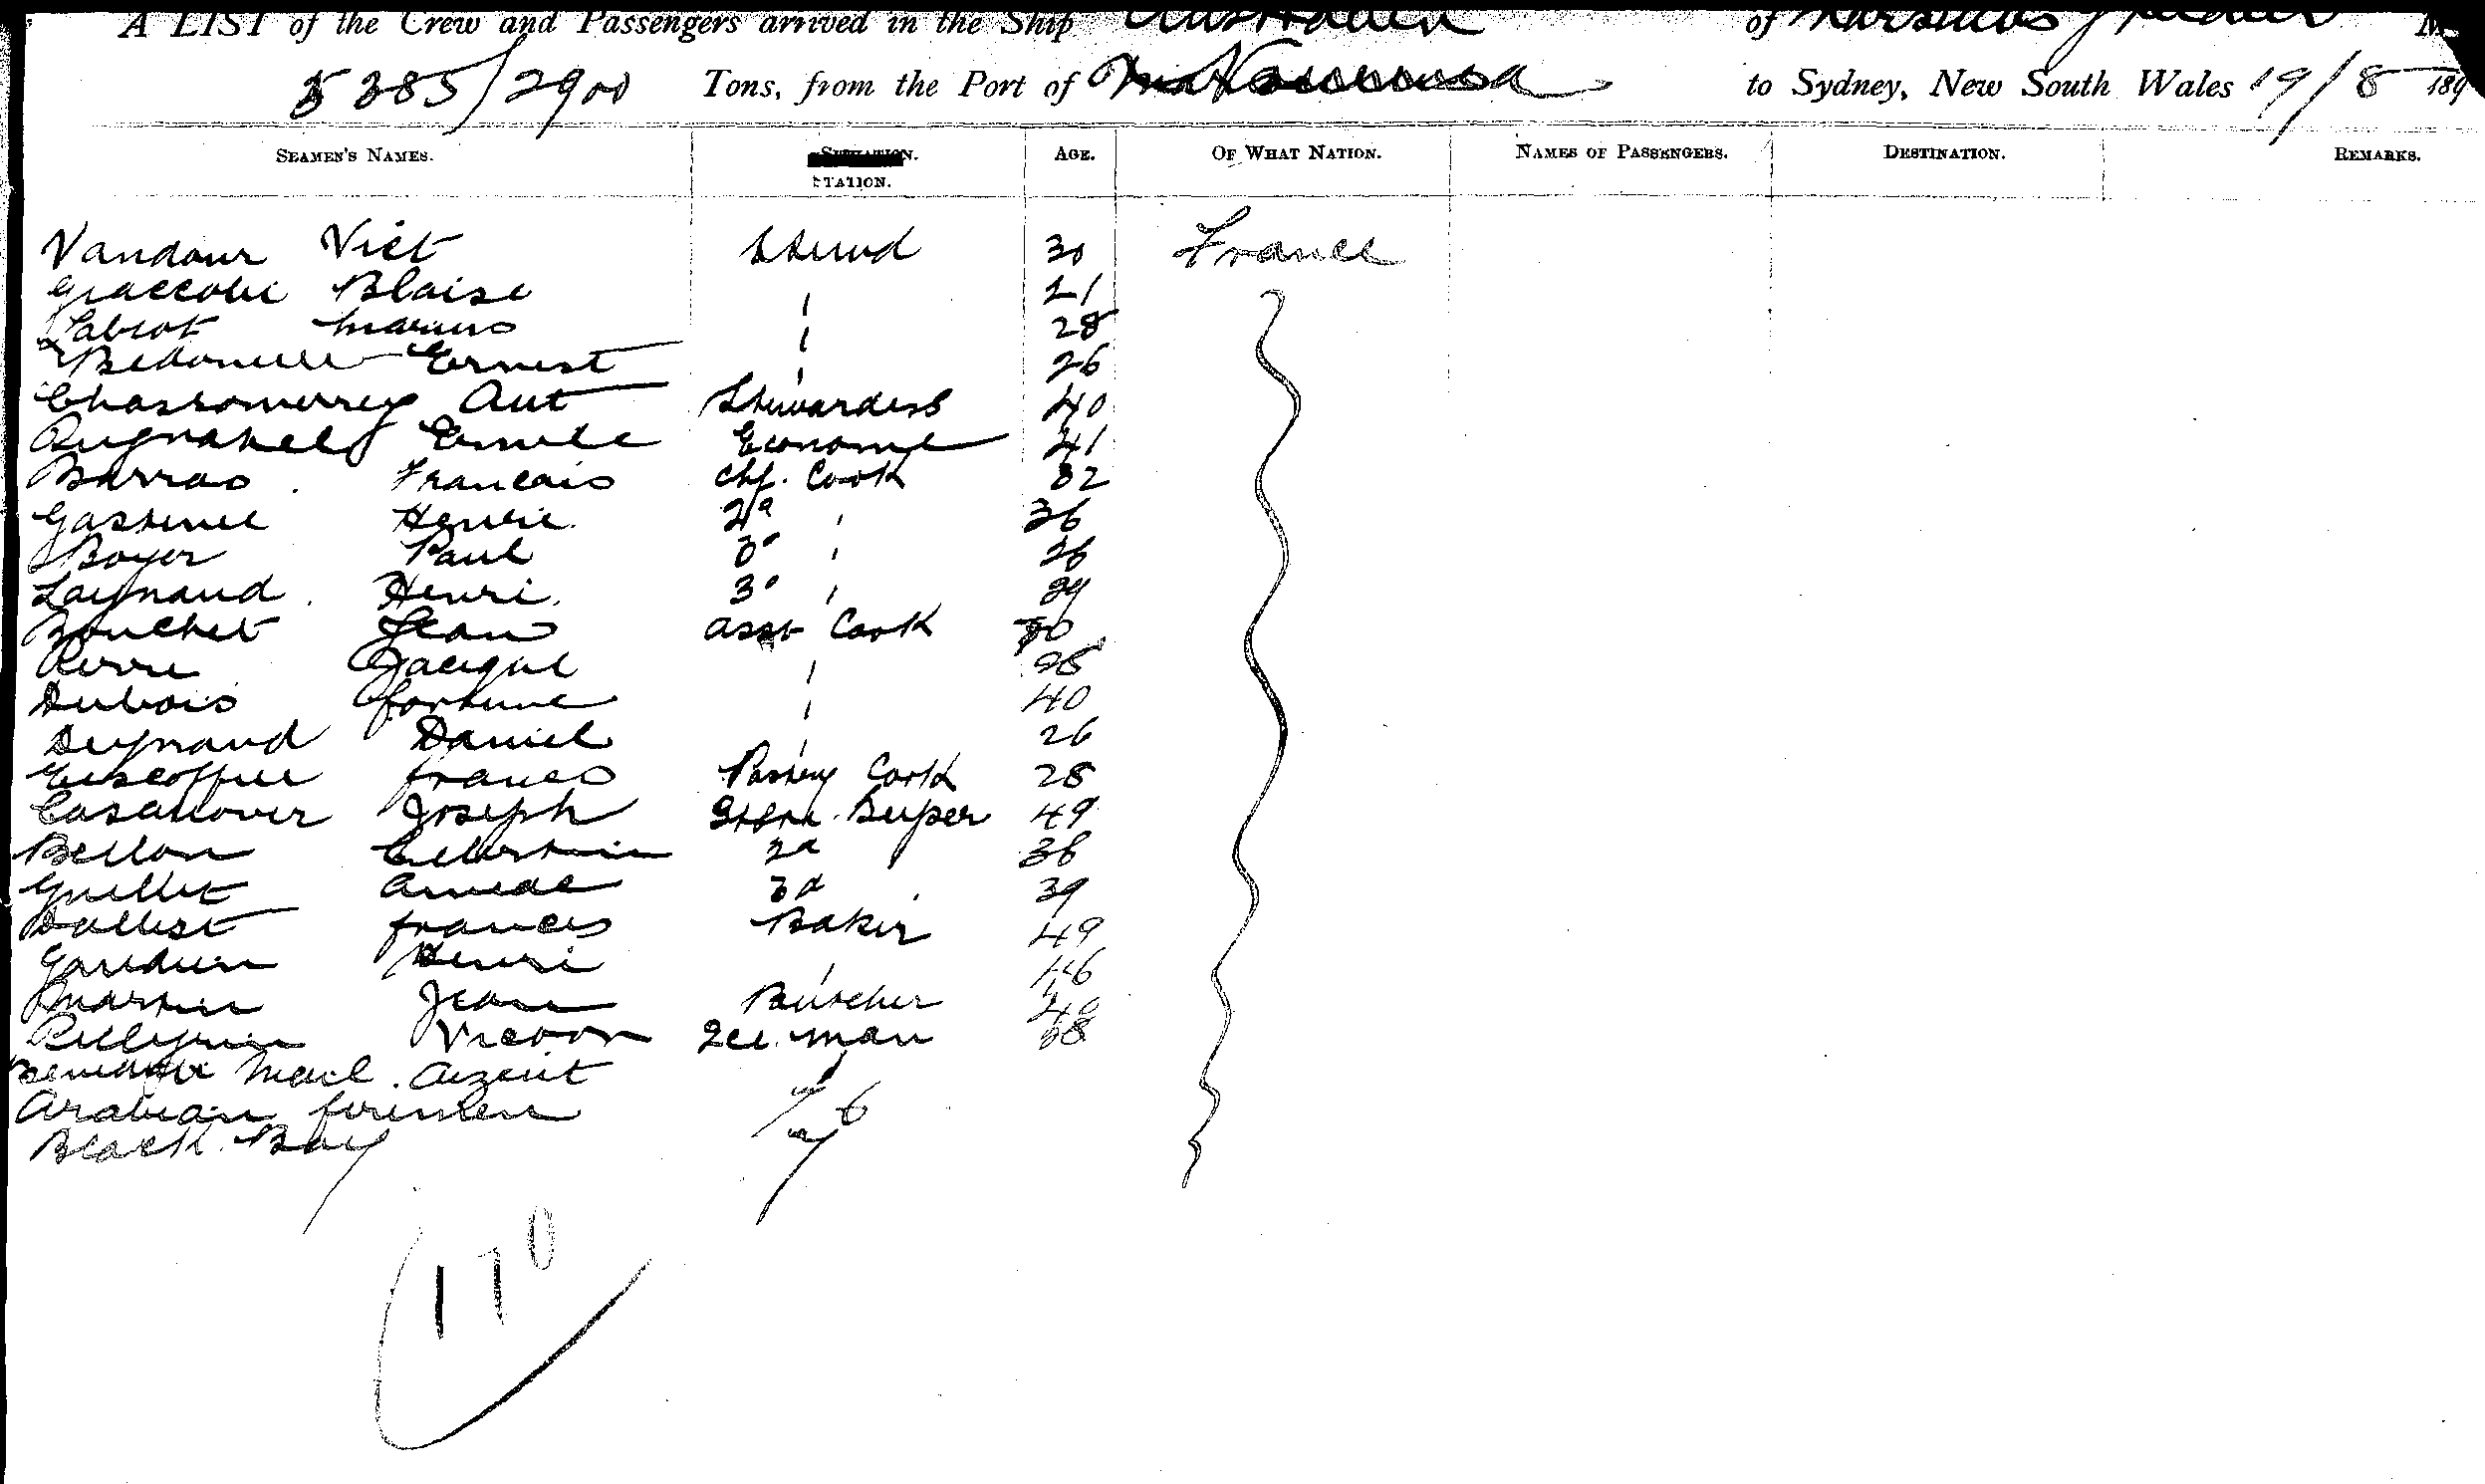 A LIST of the Crew and Passengers arrived in the Ship Australien of Marseilles
5385/2900 Tons, from the Port of Noumea to Sydney, New South Wales 19/8 189
SEAMEN'S NAMES. STATION. AGE. OF WHAT NATION. NAMES OF PASSENGERS. DESTINATION. REMARKS.
Vandour Vict Stewd 30 France
Giaccobi Blaise 21
Marius 28
Ernest 26
Aut Stewardess 40
Emile Econome 41
Barras Francais Chf. Cook 32
Gastinel Henri 2d 36
Boyer Paul 3d 26
Laignaud Henri 3d 29
Bouchet Jean asst Cook
Pierre Jacque 28
Dubois fortune 40
Deynaud Daniel 26
Escoffier francs Pastry Cook 28
Casanover Joseph Store Keeper 49
Bellon Celestin 2d 36
Guillet Amede 3d 39
Dallest francis Baker 49
Gauduin Henri 46
Martin Jean Butcher 40
Pellegrin Victor 38
Mail. Agent 1
Arabian firemen 76
Black Boy 7
170